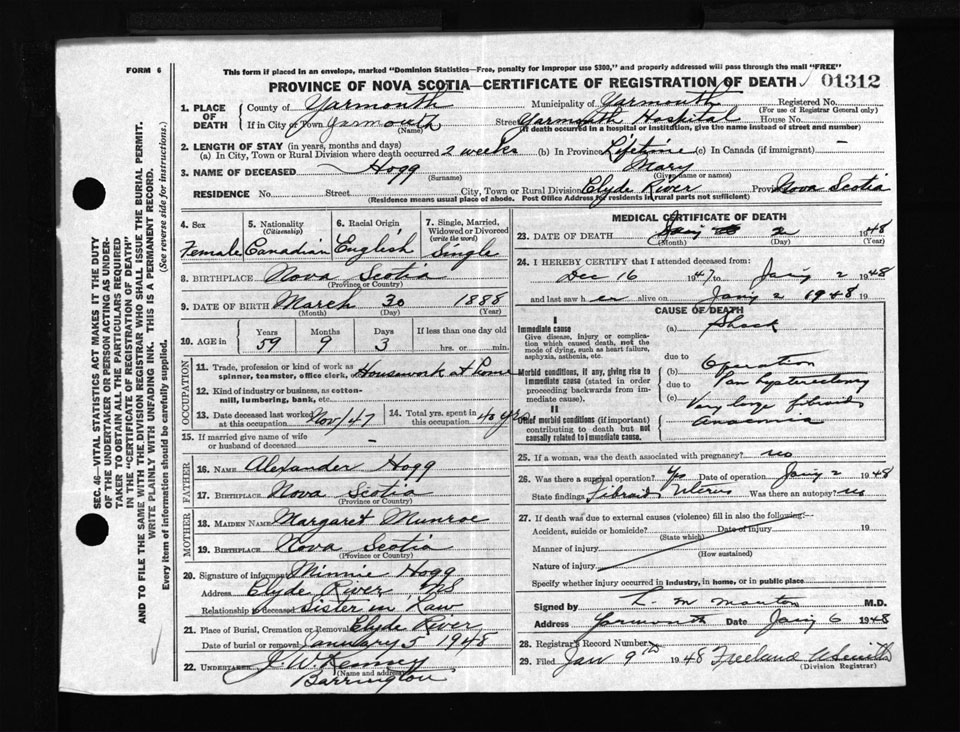 FORM 6
This form if placed in an envelope, marked "Dominion Statistics—Free, penalty for improper use $300," and properly addressed will pass through the mail "FREE"
PROVINCE OF NOVA SCOTIA—CERTIFICATE OF REGISTRATION OF DEATH 01312
1. PLACE OF DEATH County of Yarmouth Municipality of Yarmouth Registered No.
(For use of Registrar General only)
If in City or Town Yarmouth Street Yarmouth Hospital House No.
(Name) (If death occurred in a hospital or institution, give the name instead of street and number)
2. LENGTH OF STAY (in years, months and days)
(a) In City, Town or Rural Division where death occurred 2 weeks (b) In Province Lifetime (c) In Canada (if immigrant) —
3. NAME OF DECEASED Hogg Mary
(Surname) (Given name or names)
RESIDENCE No. Street City, Town or Rural Division Clyde River Province Nova Scotia
(Residence means usual place of abode. Post Office Address for residents in rural parts not sufficient)
4. Sex 5. Nationality (Citizenship) 6. Racial Origin 7. Single, Married, Widowed or Divorced (write the word)
Female Canadian English Single
8. BIRTHPLACE Nova Scotia
(Province or Country)
9. DATE OF BIRTH March 30 1888
(Month) (Day) (Year)
10. AGE in Years Months Days If less than one day old
59 9 3 hrs. or min.
OCCUPATION
11. Trade, profession or kind of work as spinner, teamster, office clerk, Housework at home
12. Kind of industry or business, as cotton-mill, lumbering, bank, etc.
13. Date deceased last worked at this occupation Nov/47 14. Total yrs. spent in this occupation 40 yrs
15. If married give name of wife or husband of deceased —
FATHER
16. NAME Alexander Hogg
17. BIRTHPLACE Nova Scotia
(Province or Country)
MOTHER
18. MAIDEN NAME Margaret Munroe
19. BIRTHPLACE Nova Scotia
(Province or Country)
20. Signature of informant Minnie Hogg
Address Clyde River NS
Relationship to deceased Sister in Law
21. Place of Burial, Cremation or Removal Clyde River
Date of burial or removal January 5 1948
22. UNDERTAKER J. W. Kenney
(Name and address)
Barrington
MEDICAL CERTIFICATE OF DEATH
23. DATE OF DEATH 2 1948
(Month) (Day) (Year)
24. I HEREBY CERTIFY that I attended deceased from:
Dec 16 1947 to Jany 2 1948
and last saw h er alive on Jany 2 1948 19
CAUSE OF DEATH
I
Immediate cause (a) Shock
Give disease, injury or complication which caused death, not the mode of dying, such as heart failure, asphyxia, asthenia, etc.
due to
(b) Operation
Morbid conditions, if any, giving rise to immediate cause (stated in order proceeding backwards from immediate).
due to Pan hysterectomy
(c) Very large fibroids
II
Other morbid conditions (if important) contributing to death but not causally related to immediate cause.
Anaemia
25. If a woman, was the death associated with pregnancy? no
26. Was there a surgical operation? Yes Date of operation Jany 2 1948
State findings Fibroid Uterus Was there an autopsy? no
27. If death was due to external causes (violence) fill in also the following:—
Accident, suicide or homicide? Date of injury 19
(State which)
Manner of injury
(How sustained)
Nature of injury
Specify whether injury occurred in industry, in home, or in public place
Signed by M.D.
Address Yarmouth Date Jany 6 1948
28. Registrar's Record Number
29. Filed Jan 9th 1948 Freeland
(Division Registrar)
SEC. 46—VITAL STATISTICS ACT MAKES IT THE DUTY
OF THE UNDERTAKER OR PERSON ACTING AS UNDER-
TAKER TO OBTAIN ALL THE PARTICULARS REQUIRED
IN THE "CERTIFICATE OF REGISTRATION OF DEATH"
AND TO FILE THE SAME WITH THE DIVISION REGISTRAR WHO SHALL ISSUE THE BURIAL PERMIT.
WRITE PLAINLY WITH UNFADING INK. THIS IS A PERMANENT RECORD.
Every item of information should be carefully supplied. (See reverse side for instructions.)